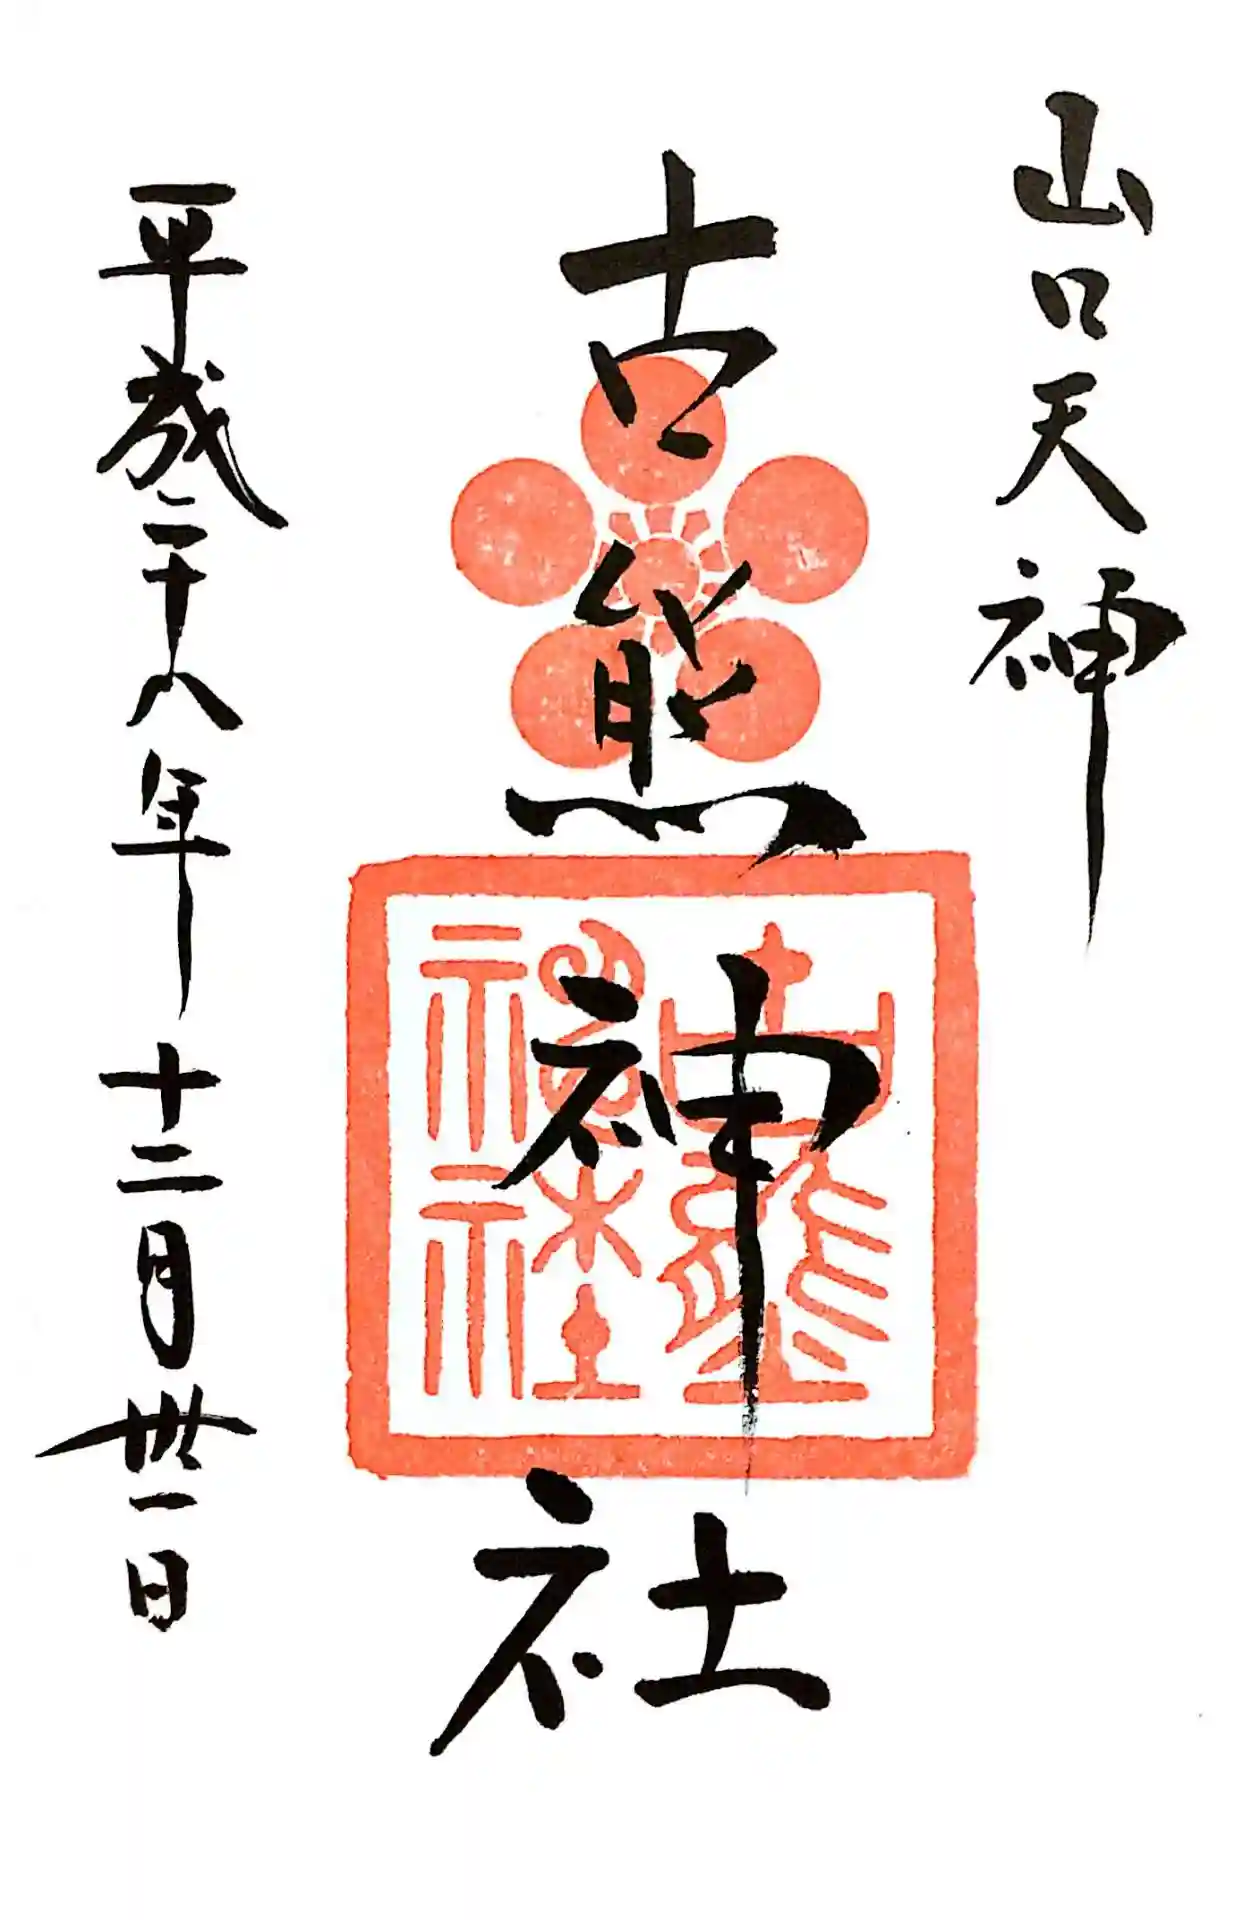 山口天神
古熊神社
古熊
神社
平成二十八年 十二月卅一日